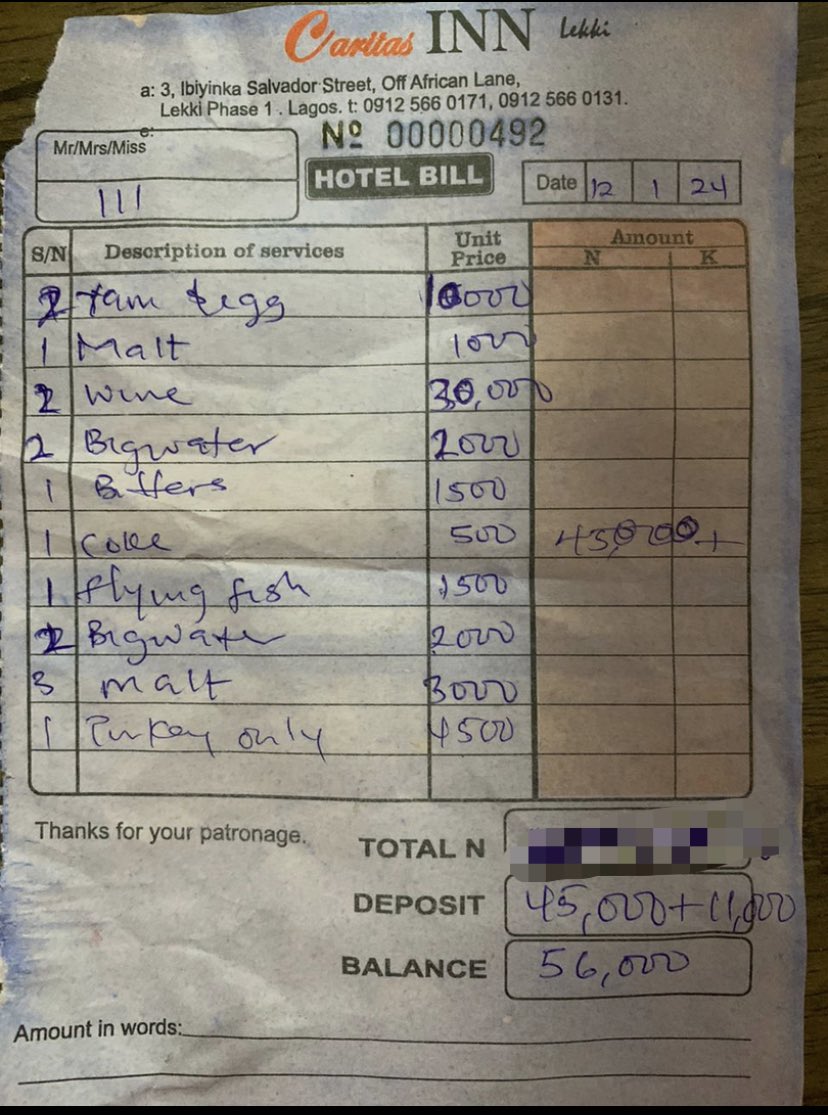 Caritas INN Lekki
a: 3, Ibiyinka Salvador Street, Off African Lane,
Lekki Phase 1 . Lagos. t: 0912 566 0171, 0912 566 0131.
e:
Nº 00000492
Mr/Mrs/Miss
111
HOTEL BILL
Date 12 1 24
S/N Description of services Unit Price Amount
N K
2 Yam & egg 10000
1 Malt 1000
2 Wine 30,000
2 Bigwater 2000
1 Bitters 1500
1 Coke 500 45,000+
1 flying fish 1500
2 Bigwater 2000
3 malt 3000
1 Turkey only 4500
Thanks for your patronage.
TOTAL N
DEPOSIT 45,000+11,000
BALANCE 56,000
Amount in words: